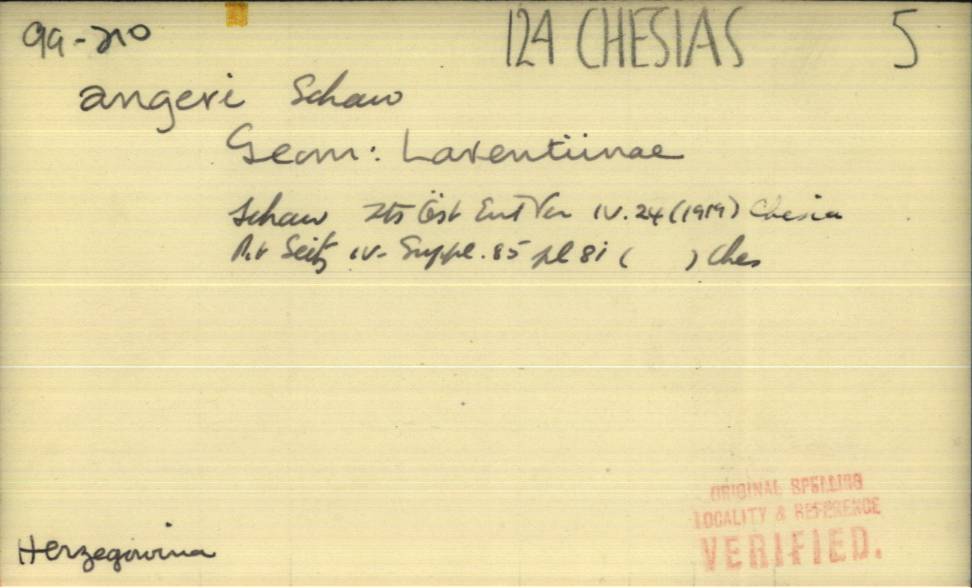 99-210 124 CHESIAS 5
angeri Schaw
Geom: Larentiinae
Schaw Zts Öst Ent Ver IV. 24 (1919) Chesia
Prt Seitz iv- Suppl. 85 pl 8i ( ) Ches
ORIGINAL SPELLING
LOCALITY & REFERENCE
VERIFIED.
Herzegowina